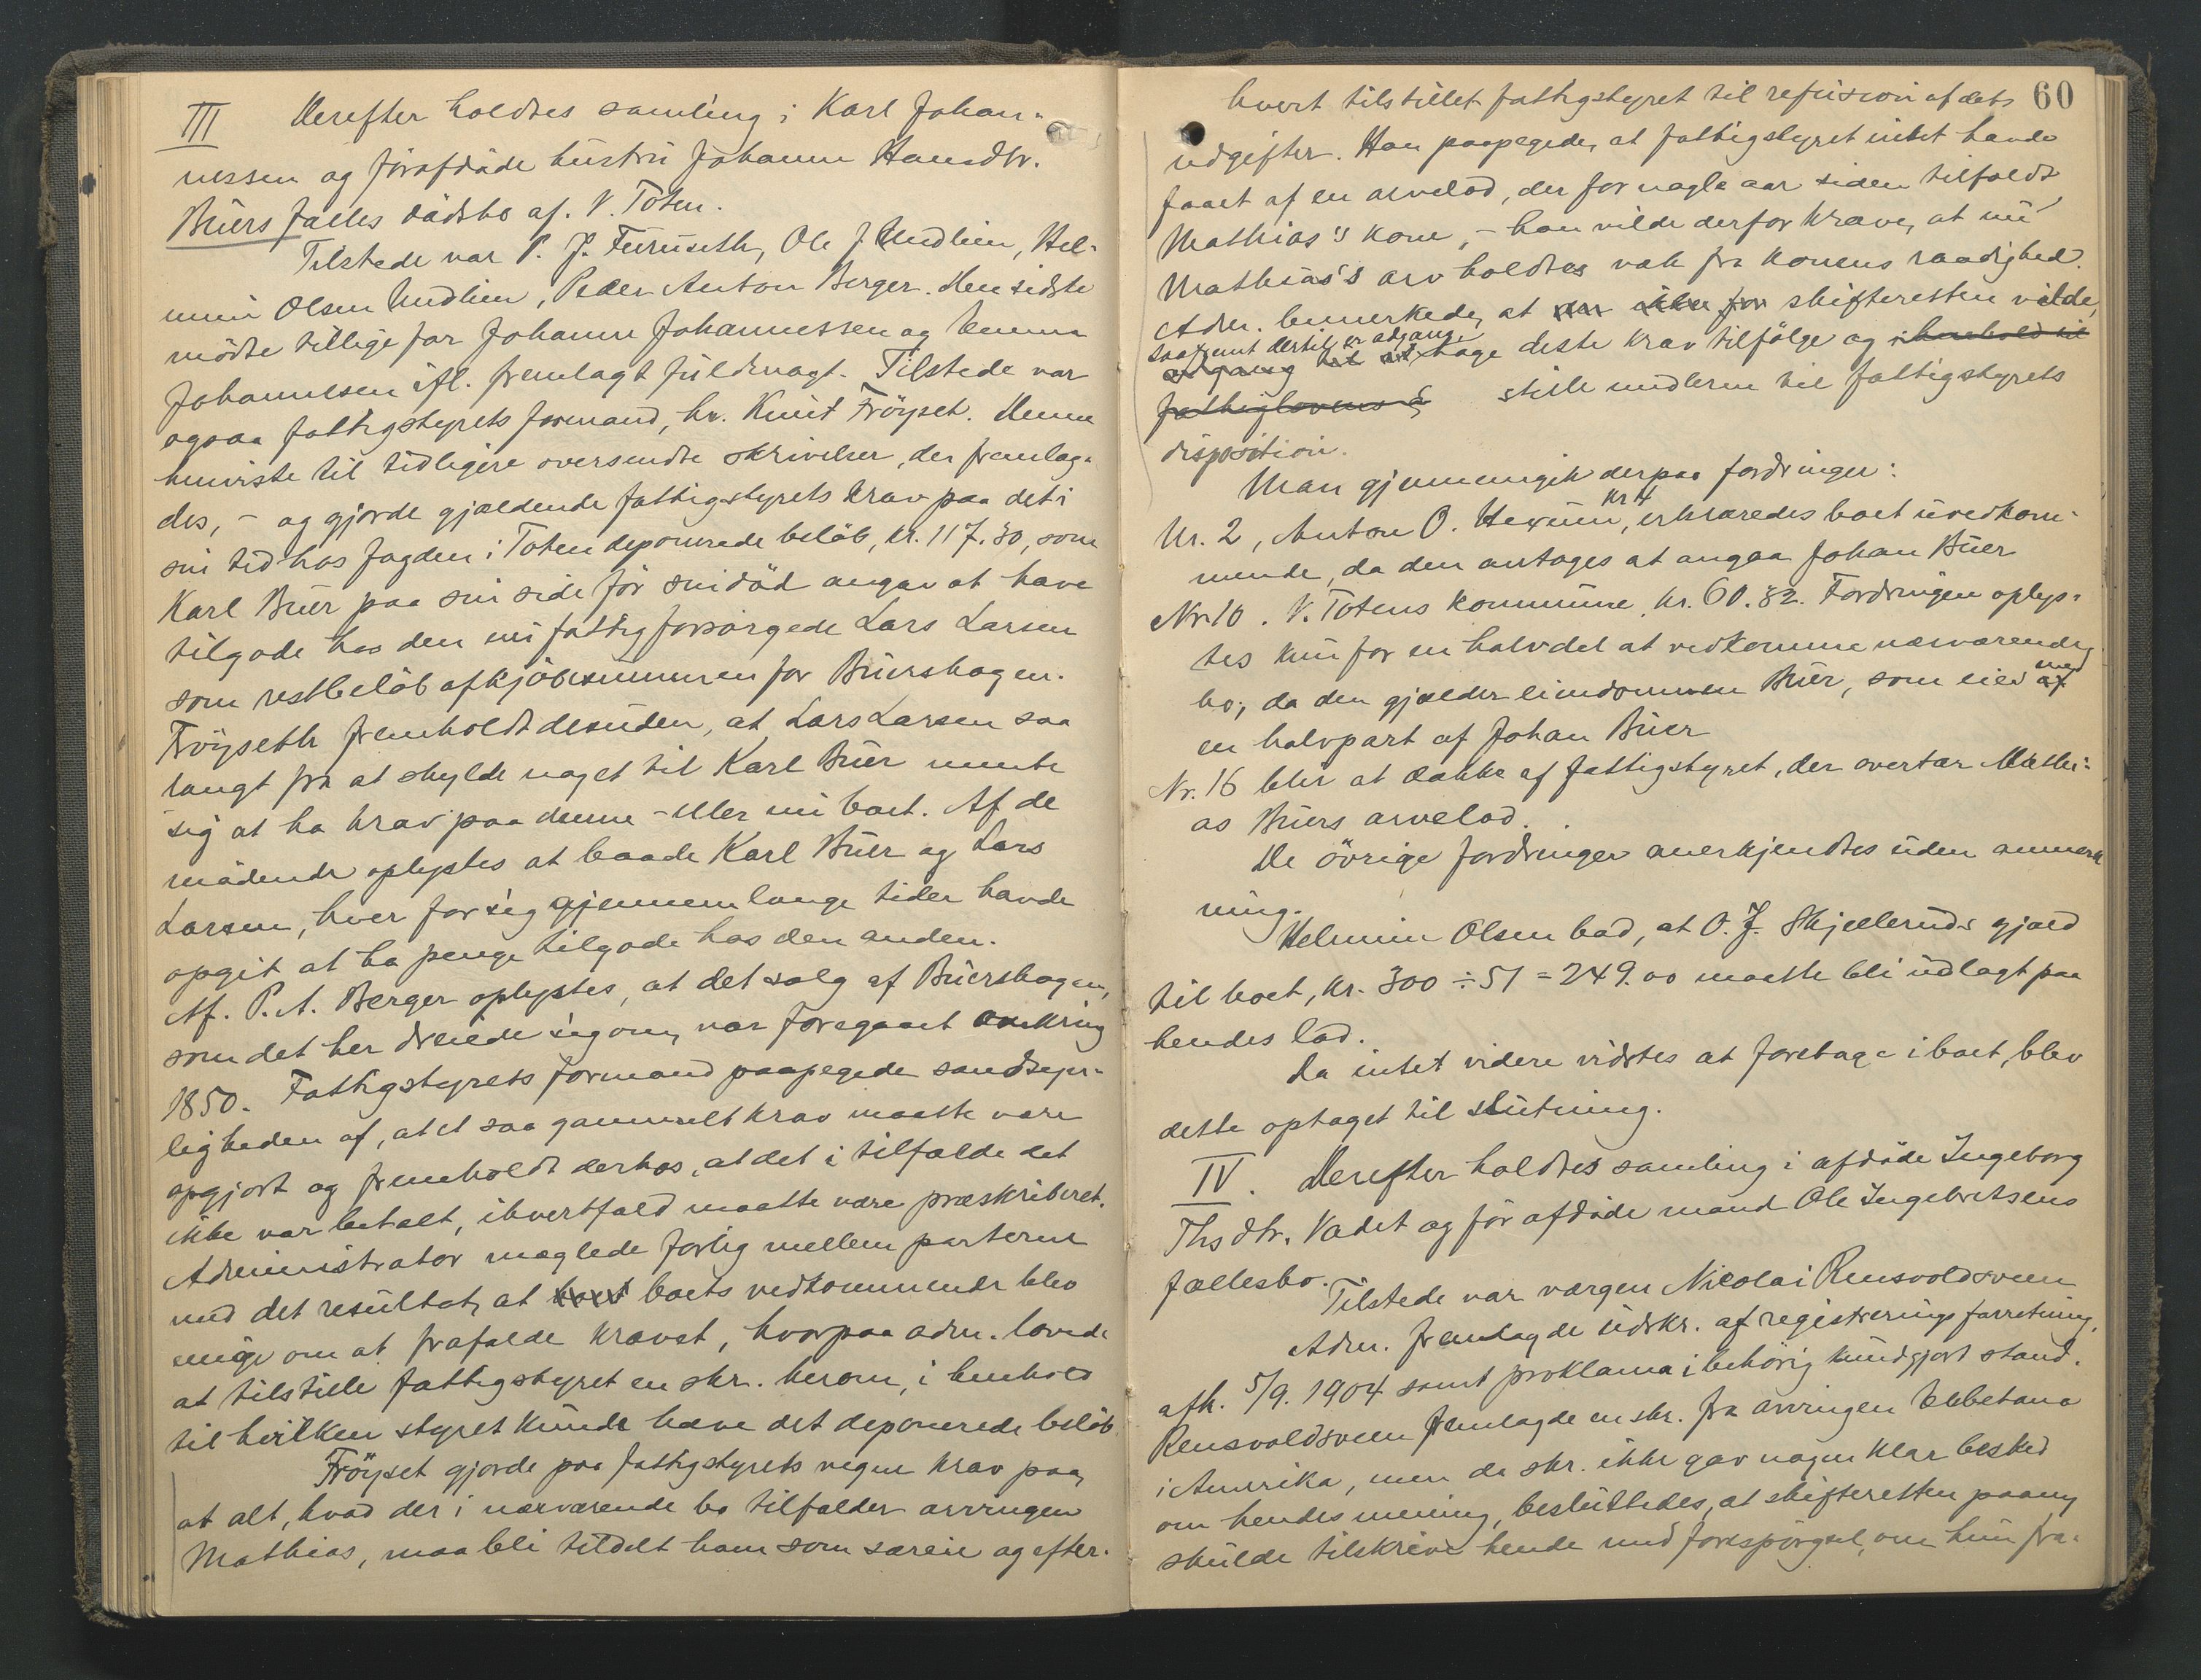 III Derefter holdtes samling i Karl Johan-
nessen og förafdöde hustru Johanne Hansdtr.
Büers fælles dödsbo af. V. Toten.
Tilstede var P. J. Furuseth, Ole J Undlien, Hel-
mine Olsen Undlien, Peder Anton Berger. Den sidste
mödte tillige for Johanne Johannessen og Emma
Johannesen ifl. fremlagt fuldmagt. Tilstede var
ogsaa fattigstyrets formand, hr. Knut Fröyset. Denne
henviste til tidligere oversendte skrivelser, der fremlag-
des, - og gjorde gjældende fattigstyrets krav paa det i
sin tid hos fogden i Toten deponerede belöb, kr. 117.30, som
Karl Büer paa sin side för sin död angav at have
tilgode hos den nu fattigforsörgede Lars Larsen
som restbelöb af kjöbesummen for Büershagen.
Fröyseth fremholdt desuden, at Lars Larsen saa
langt fra at skylde noget til Karl Büer mente
sig at ha krav paa denne - eller nu boet. Af de
mödende oplystes at baade Karl Büer og Lars
Larsen, hver for sig gjennem lange tider havde
opgit at ha penge tilgode hos den anden.
Af. P. A. Berger oplystes, at det salg af Büershagen,
som det her dreiede sig om, var foregaaet omkring
1850. Fattigstyrets formand paapegede sandsyn-
ligheden af, at et saa gammelt krav maatte være
opgjort og fremholdt derhos, at det i tilfælde det
ikke var betalt, ihvertfald maatte være præskriberet.
Administrator mæglede forlig mellem parterne
med det resultat, at boet boets vedkommende blev
enige om at frafalde kravet, hvorpaa adm. lovede
at tilstille fattigstyret en skr. herom, i henhold
til hvilken styret kunde hæve det deponerede belöb
Fröyset gjorde paa fattigstyrets vegne krav paa,
at alt, hvad der i nærværende bo tilfalder arvingen
Mathias, maa bli tildelt ham som særeie og efter-
60
hvert tilstillet fattigstyret til refusion af dets
udgifter. Han paapegede, at fattigstyret intet havde
faaet af en arvelod, der for nogle aar siden tilfaldt
Mathias's kone, - han vilde derfor kræve, at nu
Mathias's arv holdtes væk fra konens raadighed.
Adm. bemerkede, at der ikke for skifteretten vilde,
saafremt dertil er adgang
adgang til at, tage dette krav tilfölge og i henhold til
fattiglovens § stille midlerne til fattigstyrets
disposition.
Man gjennemgik derpaa fordringer:
Nr. 2, Anton O. Hexum, kr 4, erklæredes boet uvedkom-
mende, da den antages at angaa Johan Büer
Nr. 10. V. Totens kommune, kr. 60.82. Fordringen oplys-
tes kun for en halvdel at vedkomme nærværende
bo, da den gjælder eiendommen Büer, som eies af med
en halvpart af Johan Büer
Nr. 16 blir at dække af fattigstyret, der overtar Mathi-
as Büers arvelod.
De övrige fordringer anerkjendtes uden anmerk
ning.
Helmine Olsen bad, at O. J. Skjelleruds gjæld
til boet, kr. 300 ÷ 51 = 249.00 maatte bli udlagt paa
hendes lod.
Da intet videre vidstes at foretage i boet, blev
dette optaget til slutning.
IV. Derefter holdtes samling i afdöde Ingeborg
Thsdtr. Vadet og för afdöde mand Ole Ingebretsens
fællesbo.
Tilstede var værgen Nicolai Rensvoldsveen
Adm. fremlagde udskr. af registreringsforretning,
afh. 5/9. 1904 samt proklama i behörig kundgjort stand.
Rensvoldsveen fremlagde en skr. fra arvingen Ebbetana
i Amerika, men da skr. ikke gav nogen klar besked
om hendes mening, besluttedes, at skifteretten paany
skulde tilskrive hende med forespörgsel, om hun fra-